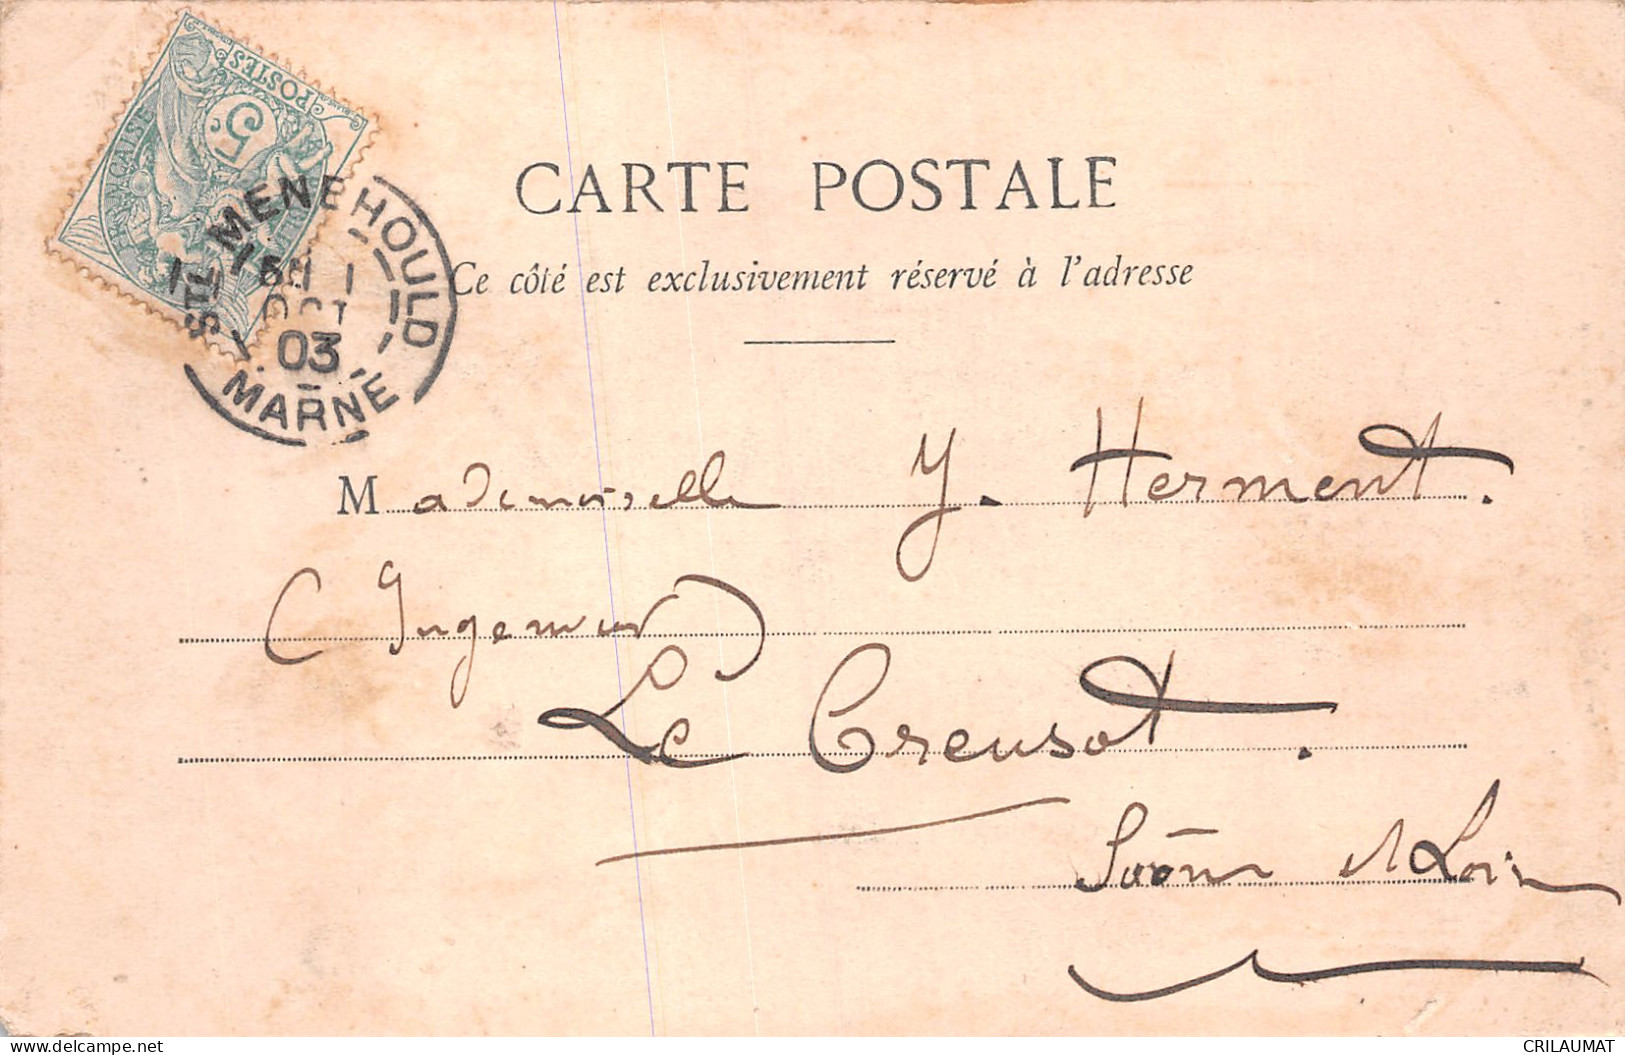 POSTES
5 c
FRANÇAISE
STE MENEHOULD
OCT
03
MARNE
CARTE POSTALE
Ce côté est exclusivement réservé à l'adresse
Mademoiselle Y. Herment.
(Ingenieur)
Le Creusot.
Saône et Loire
delcampe.net
CRILAUMAT